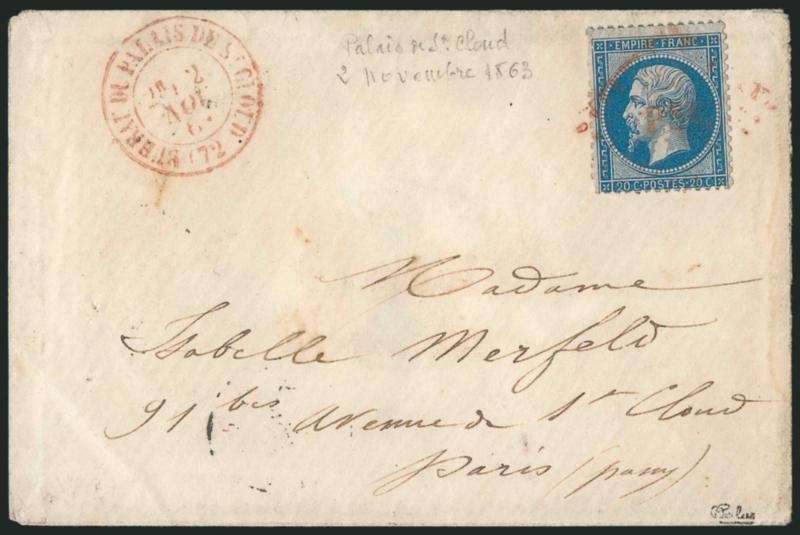 BUREAU DU PALAIS DE ST CLOUD (72)
2
NOV
6
Palais de St. Cloud
2 Novembre 1863
EMPIRE FRANC
20 C · POSTES · 20 C
Madame
Isabelle Merfeld
91 bis Avenue de St Cloud
Paris (passy)